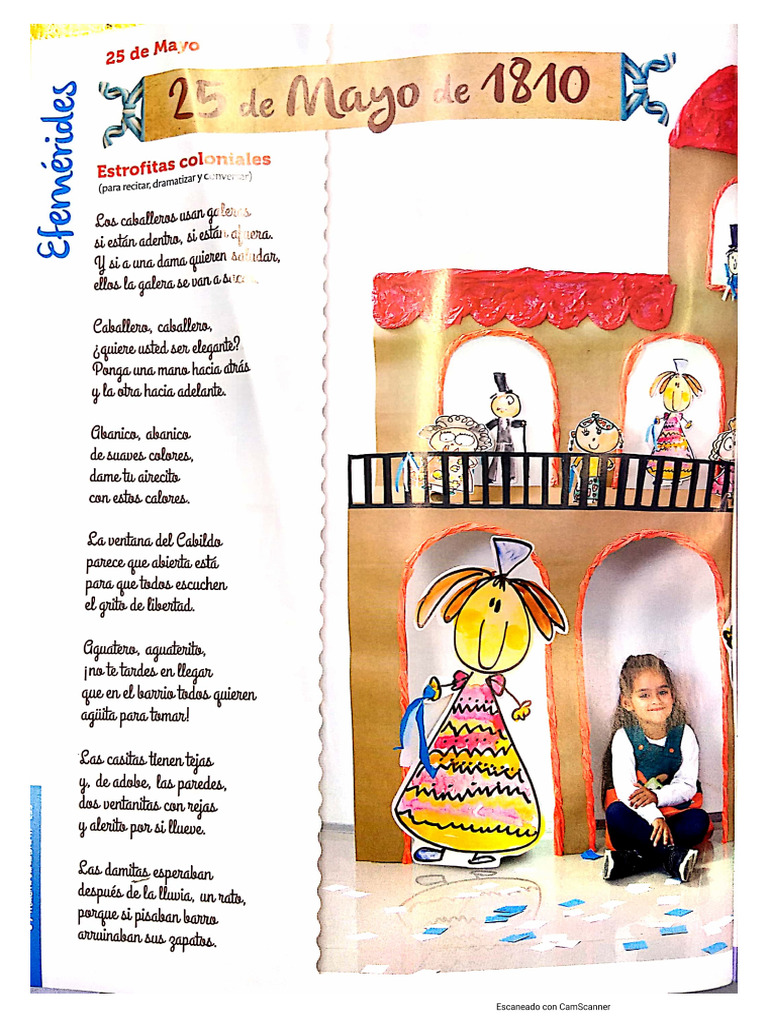 25 de Mayo
25 de Mayo de 1810
Efemérides
Estrofitas coloniales
(para recitar, dramatizar y conversar)
Los caballeros usan galeras
si están adentro, si están afuera.
Y si a una dama quieren saludar,
ellos la galera se van a sacar.
Caballero, caballero,
¿quiere usted ser elegante?
Ponga una mano hacia atrás
y la otra hacia adelante.
Abanico, abanico
de suaves colores,
dame tu airecito
con estos calores.
La ventana del Cabildo
parece que abierta está
para que todos escuchen
el grito de libertad.
Aguatero, aguaterito,
¡no te tardes en llegar
que en el barrio todos quieren
agüita para tomar!
Las casitas tienen tejas
y, de adobe, las paredes,
dos ventanitas con rejas
y alerito por si llueve.
Las damitas esperaban
después de la lluvia, un rato,
porque si pisaban barro
arruinaban sus zapatos.
Escaneado con CamScanner